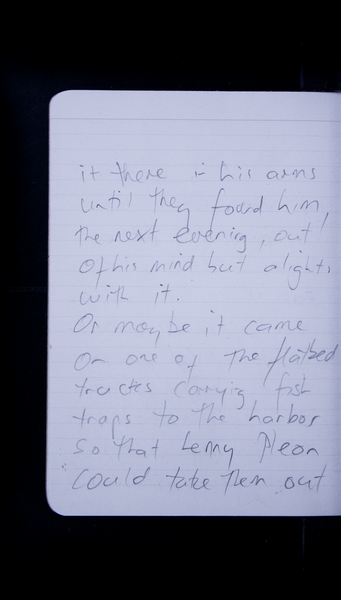 it there in his arms
until they found him,
the next evening, out
of his mind but alight
with it.
Or maybe it came
on one of the flatbed
trucks carrying fish
traps to the harbor
so that Lenny
could take them out